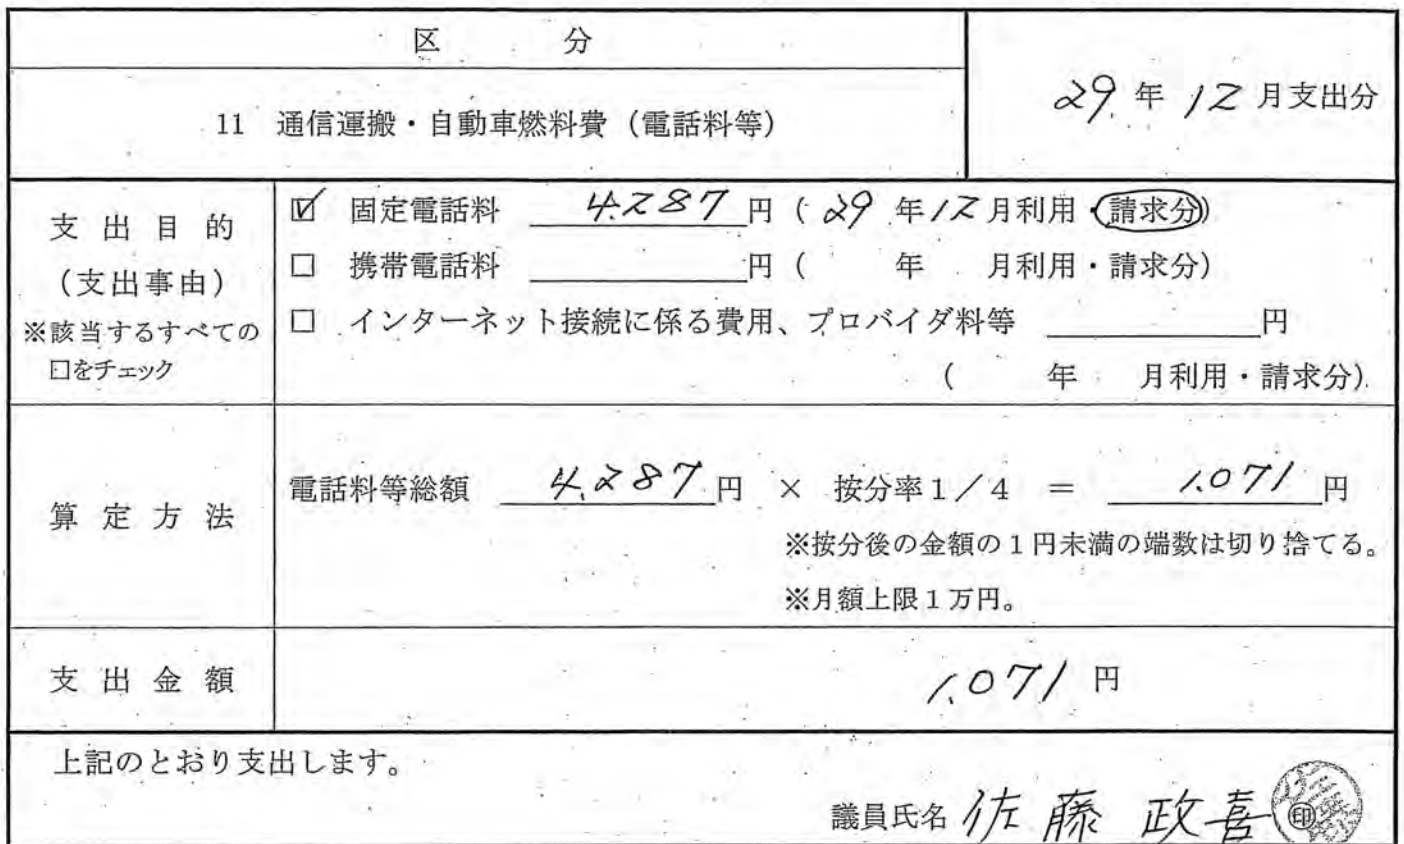 区分
29年12月支出分
11 通信運搬・自動車燃料費（電話料等）
支出目的
（支出事由）
※該当するすべての
□をチェック
☑ 固定電話料 4.287円（29年12月利用・請求分）
□ 携帯電話料 円（ 年 月利用・請求分）
□ インターネット接続に係る費用、プロバイダ料等 円
（ 年 月利用・請求分）
算定方法
電話料等総額 4.287円 × 按分率1／4 ＝ 1.071円
※按分後の金額の1円未満の端数は切り捨てる。
※月額上限1万円。
支出金額
1.071円
上記のとおり支出します。
議員氏名 佐藤 政喜 印